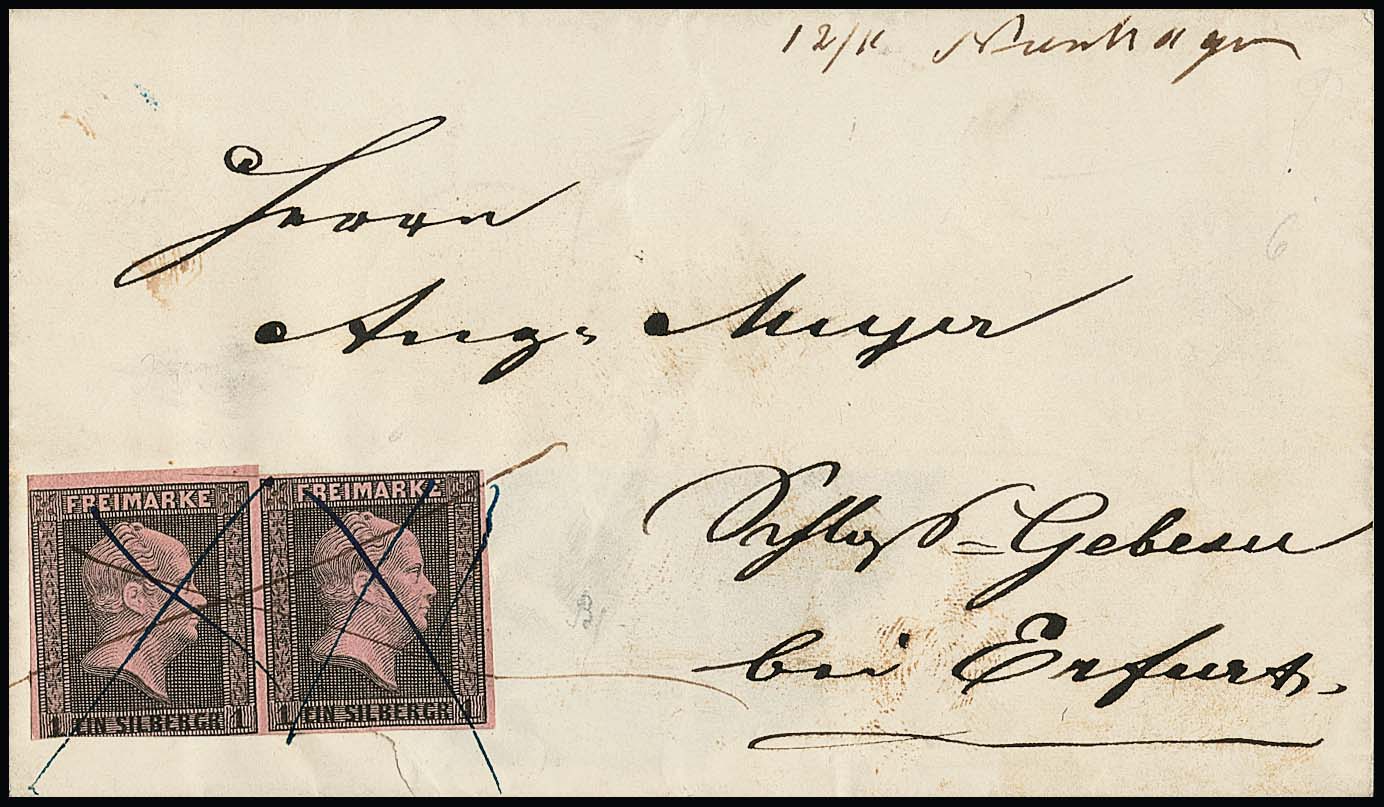 12/11 Neuhagen
Herrn
Aug: Meyer
Schloß=Gebesee
bei Erfurt.
FREIMARKE
1 EIN SILBERGR 1
FREIMARKE
1 EIN SILBERGR 1